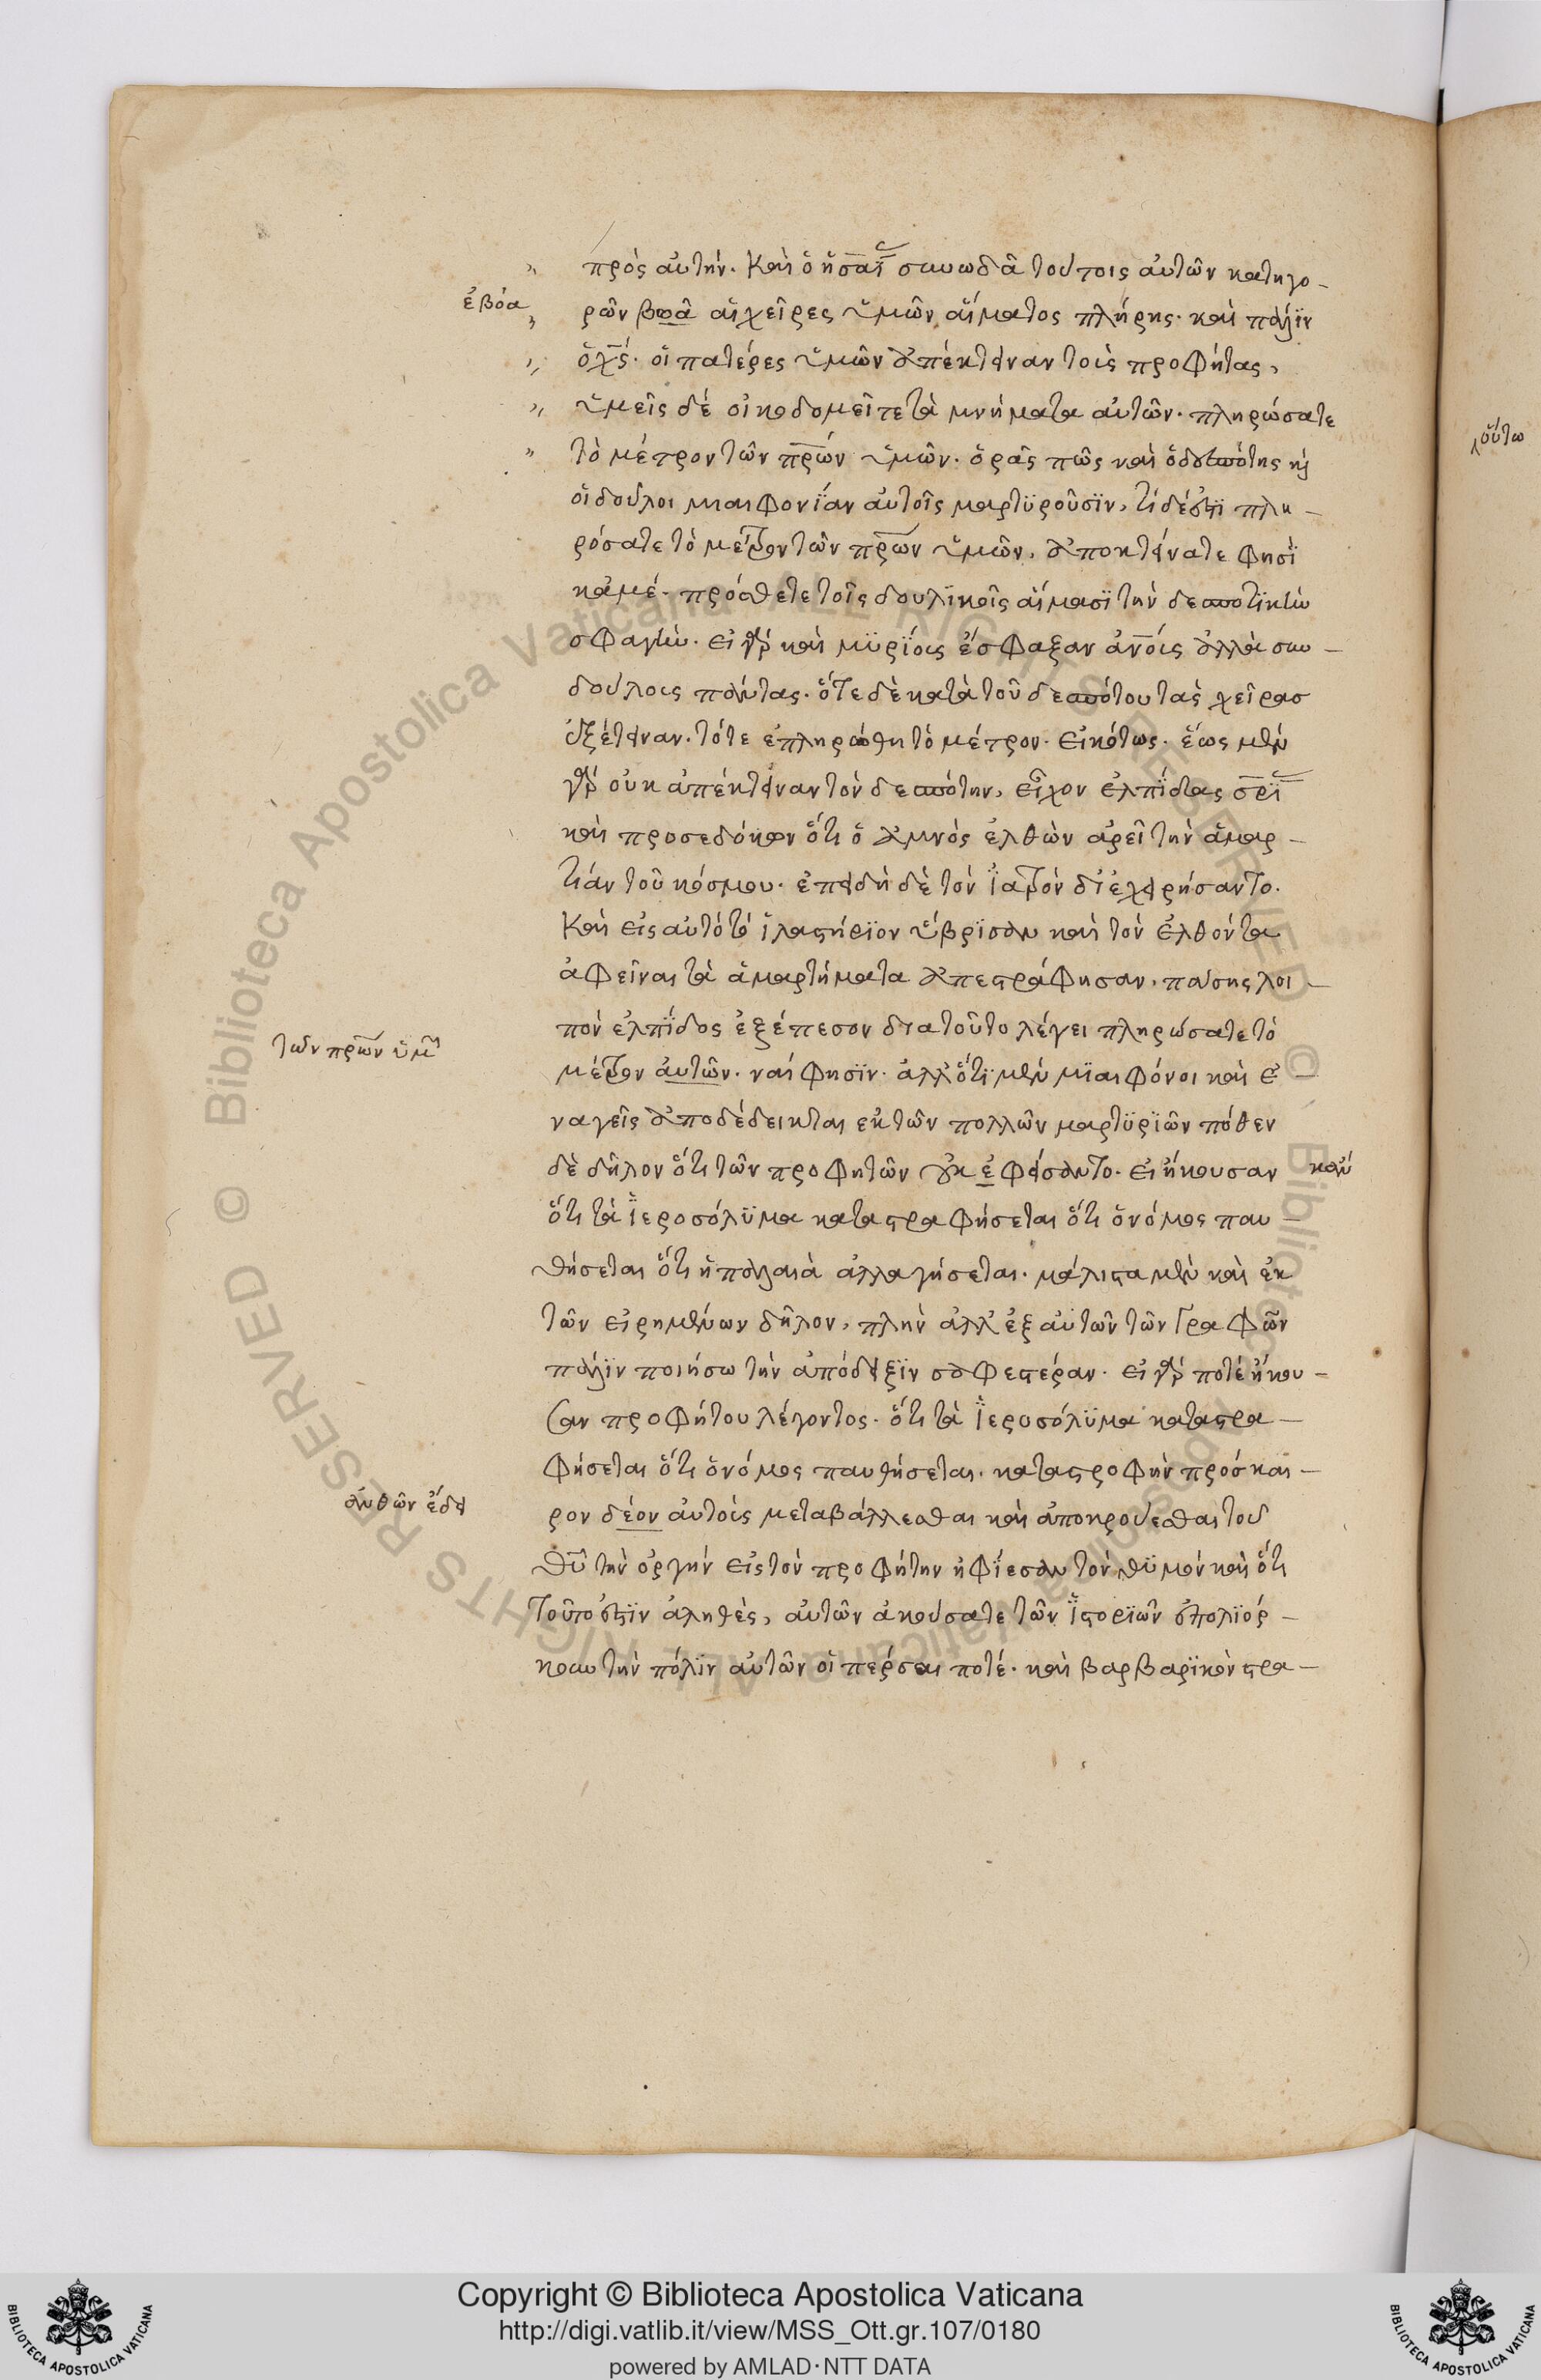 πρὸς αὐτήν. Καὶ ὁ ἡσαΐ συνωδὰ τούτοις αὐτῶν κατηγο-
ἐβόα
ρῶν βοᾶ αἱ χεῖρες ὑμῶν αἵματος πλήρης. καὶ πάλϊν
ὁ χς. οἱ πατέρες ὑμῶν ἀπέκτειναν τοὺς προφήτας,
ὑμεῖς δὲ οἰκοδομεῖτε τὰ μνήματα αὐτῶν. πληρώσατε
τὸ μέτρον τῶν πρων ὑμῶν. ὁρᾶς πῶς καὶ ὁ δεσπότης κ
οἱ δοῦλοι μιαιφονΐαν αὐτοῖς μαρτϋροῦσϊν, τί δέ ἐστϊ πλη-
ρόσατε τὸ μέτρον τῶν πρων ὑμῶν, ἀποκτείνατε φησΐ
κἀμέ. πρόσθετε τοῖς δουλϊκοῖς αἵμασϊ τὴν δεσποτϊκὴν
σφαγήν. εἰ γὰρ καὶ μϋρΐους ἔσφαξαν ανους ἀλλὰ συν-
δούλους πάντας. ὅτε δὲ κατὰ τοῦ δεσπότου τὰς χεῖρασ
ἐξέτειναν. τότε ἐπληρώθη τὸ μέτρον. εἰκότως. ἕως μὲν
γὰρ οὐκ ἀπέκτειναν τὸν δεσπότην, εἶχον ἐλπΐδας σρΐ
καὶ προσεδόκων ὅτι ὁ ἀμνὸς ἐλθὼν ἀρεῖ τὴν ἁμαρ-
τίαν τοῦ κόσμου. ἐπειδὴ δὲ τὸν ἰατρὸν διεχειρήσαντο.
Καὶ εἰς αὐτὸ τὸ ἱλαστήρϊον ὕβρϊσαν καὶ τὸν ἐλθόντα
ἀφεῖναι τὰ ἁμαρτήματα ἀπεστράφησαν, πάσης λοι-
πὸν ἐλπΐδος ἐξέπεσον διατοῦτο λέγει πληρώσατε τὸ
τῶν πρων ὑμ
μέτρον αὐτῶν. ναί φησϊν. ἀλλ' ὅτϊ μὲν μϊαιφόνοι καὶ ἐ-
ναγεῖς ἀποδέδεικται ἐκ τῶν πολλῶν μαρτϋρϊῶν πόθεν
δὲ δῆλον ὅτι τῶν προφητῶν οὐκ ἐφείσαντο. εἰ ἤκουσαν καν
ὅτι τὰ Ἱεροσόλϋμα καταστραφήσεται ὅτι ὁ νόμος παυ-
θήσεται ὅτι ἡ παλαιὰ ἀλλαγήσεται. μάλιστα μὲν καὶ ἐκ
τῶν εἰρημένων δῆλον, πλὴν ἀλλ' ἐξ αὐτῶν τῶν Γραφῶν
πάλϊν ποιήσω τὴν ἀπόδειξϊν σαφεστέραν. εἰ γὰρ ποτὲ ἤκου-
σαν προφήτου λέγοντος. ὅτι τὰ Ἱεροσόλϋμα καταστρα-
φήσεται ὅτι ὁ νόμος παυθήσεται. καταστροφὴν πρόσκαι-
ἀνθῶν ἔδει
ρον δέον αὐτοὺς μεταβάλλεσθαι καὶ ἀποκρούεσθαι τοῦ
θυ τὴν ὀργήν εἰς τὸν προφήτην ἠφΐεσαν τὸν θϋμόν καὶ ὅτι
τοῦτο ἐστϊν ἀληθὲς, αὐτῶν ἀκούσατε τῶν ἱστορϊῶν ἐπολϊόρ-
κουν τὴν πόλϊν αὐτῶν οἱ πέρσαι ποτέ. καὶ βαρβαρϊκὸν στρα-
οὕτω
Copyright © Biblioteca Apostolica Vaticana
http://digi.vatlib.it/view/MSS_Ott.gr.107/0180
powered by AMLAD·NTT DATA
BIBLIOTECA APOSTOLICA VATICANA
BIBLIOTECA APOSTOLICA VATICANA
© Biblioteca Apostolica Vaticana ALL RIGHTS RESERVED © Biblioteca Apostolica Vaticana ALL RIGHTS RESERVED